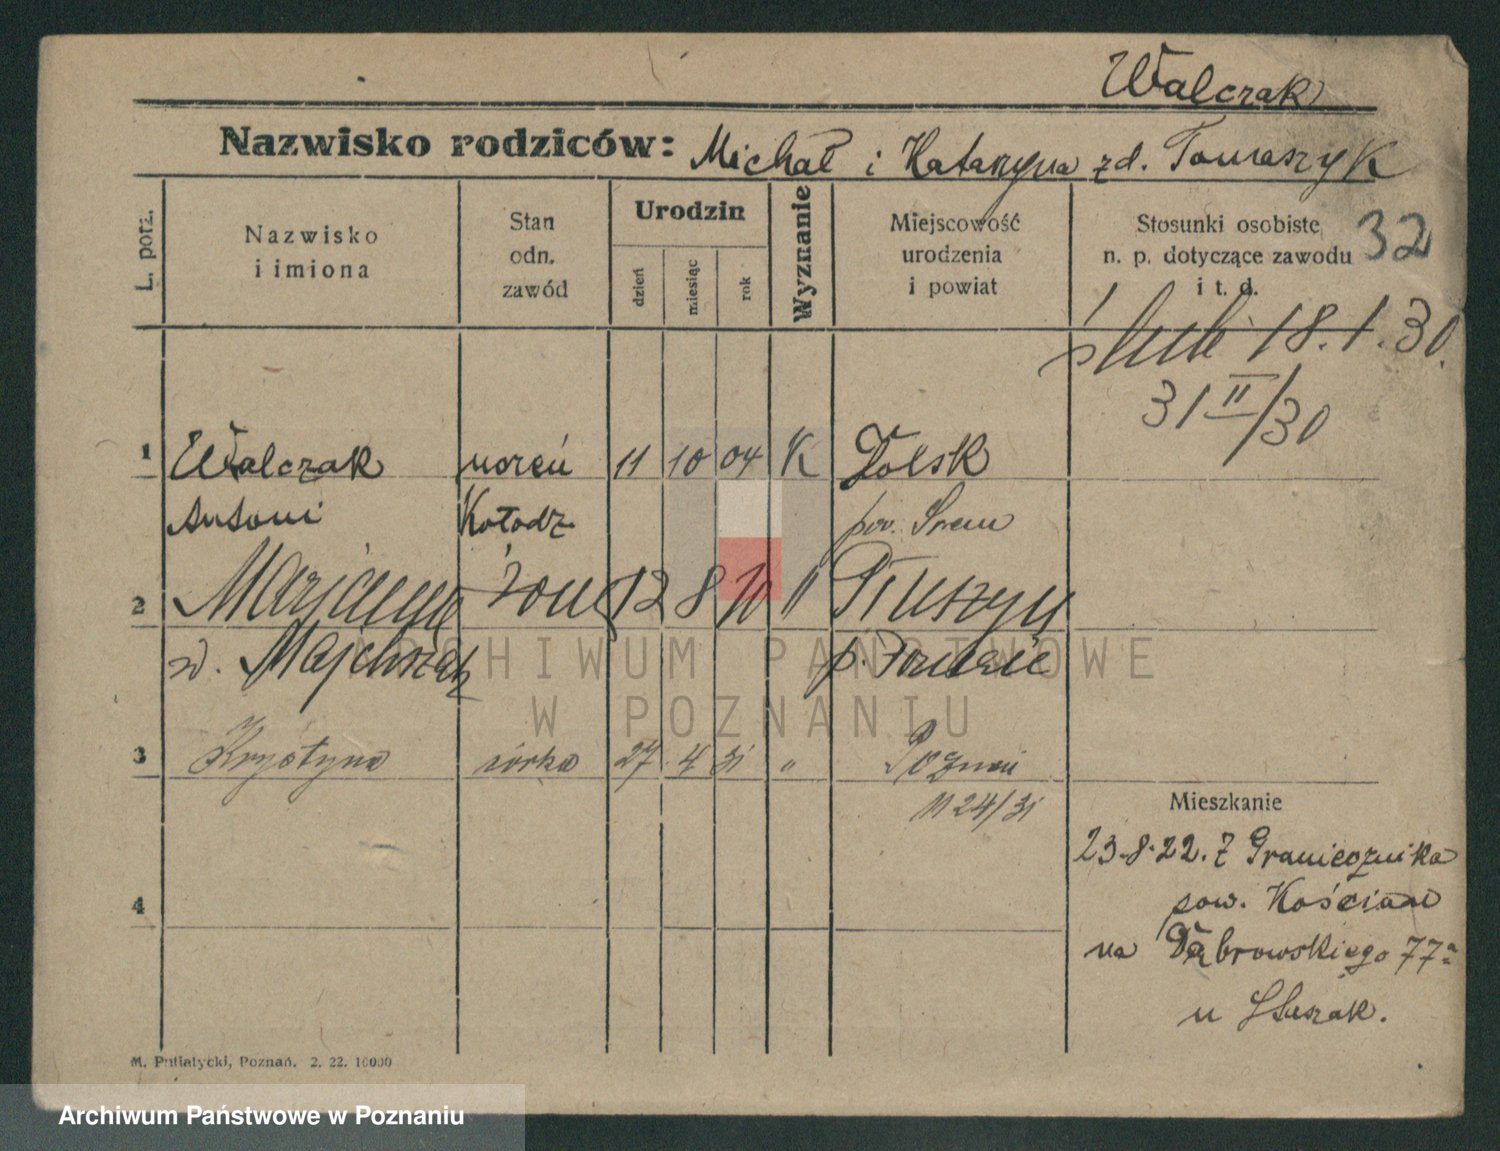 Walczak
Nazwisko rodziców: Michał i Katarzyna zd. Tomaszyk
L. porz.
Nazwisko
i imiona
Stan
odn.
zawód
Urodzin
dzień
miesiąc
rok
Wyznanie
Miejscowość
urodzenia
i powiat
Stosunki osobiste
n. p. dotyczące zawodu
i t. d.
32
ślub 18.1.30.
31 II/30
1 Walczak 11 10 04 K Dolsk
Antoni Kołodz. pow. Śrem
2 Marjanna żona 12 8 10 "
zd. Majchrzak p.
3 Krystyna córka 27 4 31 " Poznań
1124/31
4
Mieszkanie
23.8.22. z Granicznika
pow. Kościan
na Dąbrowskiego 77a
u
M. Putiatycki, Poznań. 2. 22. 10000
ARCHIWUM PAŃSTWOWE
W POZNANIU
Archiwum Państwowe w Poznaniu